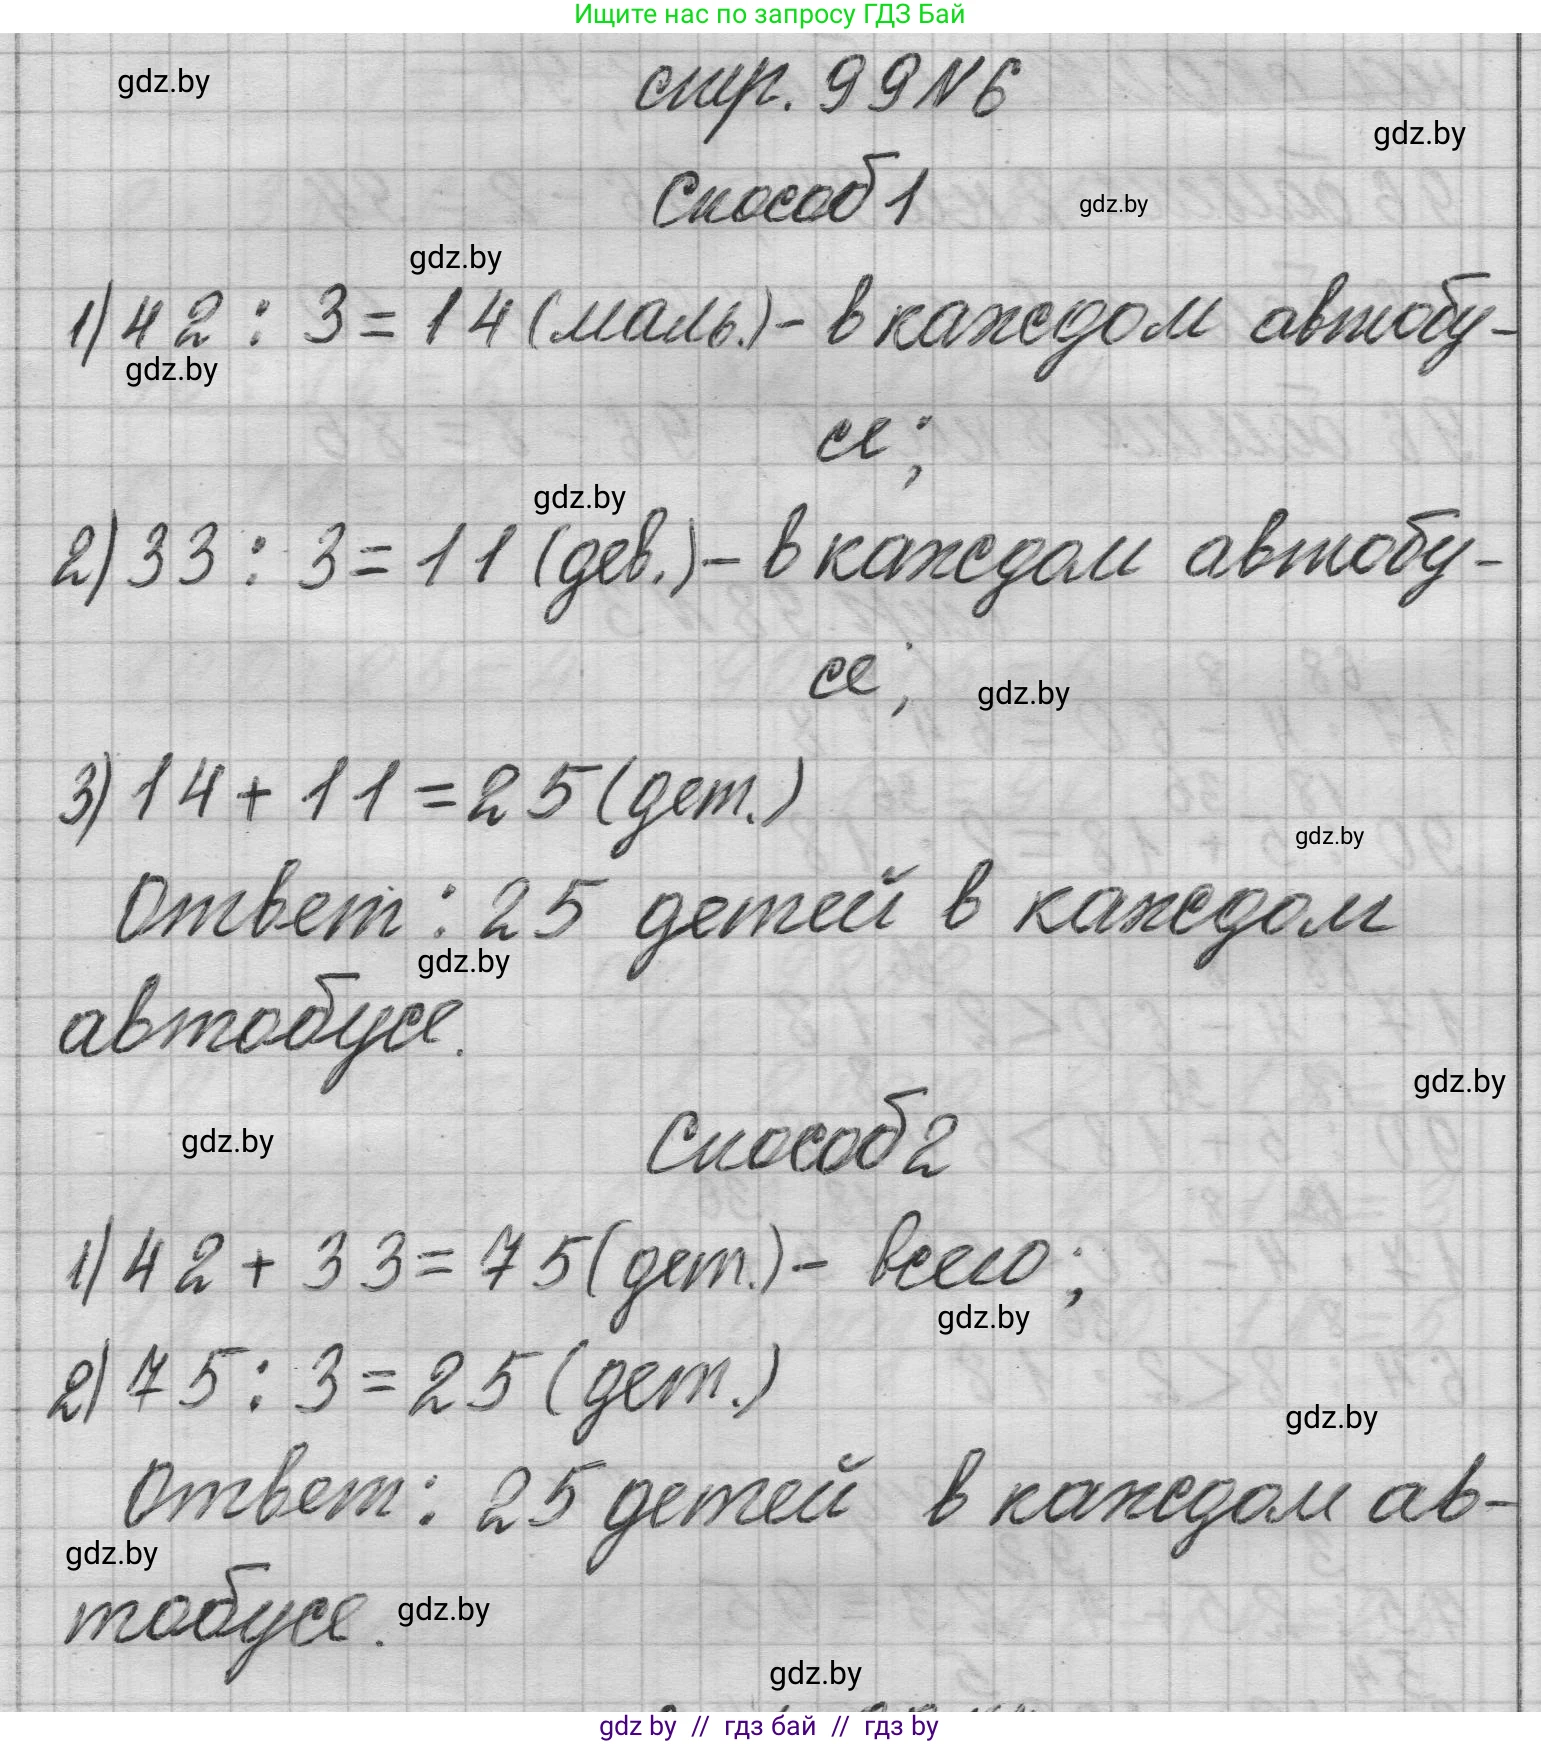 Ищите нас по запросу ГДЗ Бай
gdz.by
стр. 99 N 6
gdz.by
Способ 1
gdz.by
gdz.by
1) 42 : 3 = 14 (маль.) - в каждом автобу-
gdz.by
се;
gdz.by
2) 33 : 3 = 11 (дев.) - в каждом автобу-
се;
gdz.by
3) 14 + 11 = 25 (дет.)
gdz.by
Ответ : 25 детей в каждом
gdz.by
автобусе.
gdz.by
Способ 2
gdz.by
1) 42 + 33 = 75 (дет.) - всего;
gdz.by
2) 75 : 3 = 25 (дет.)
gdz.by
Ответ : 25 детей в каждом ав-
gdz.by
тобусе.
gdz.by
gdz.by
gdz by // гдз бай // гдз by